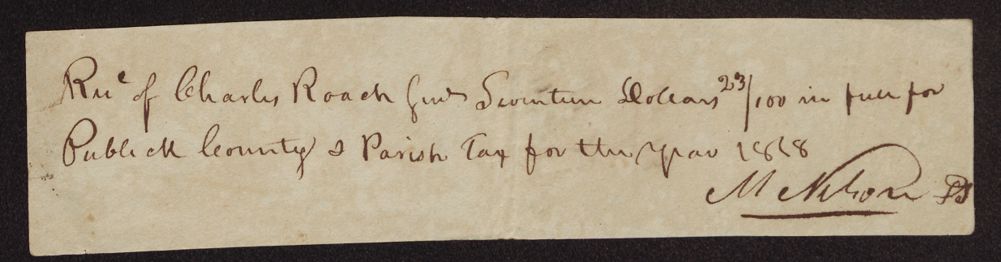 Rec^e of Charles Roach Jun^r Seventeen Dollars 23/100 in full for
Publick County & Parish Tax for the year 1818
M Nelson DS